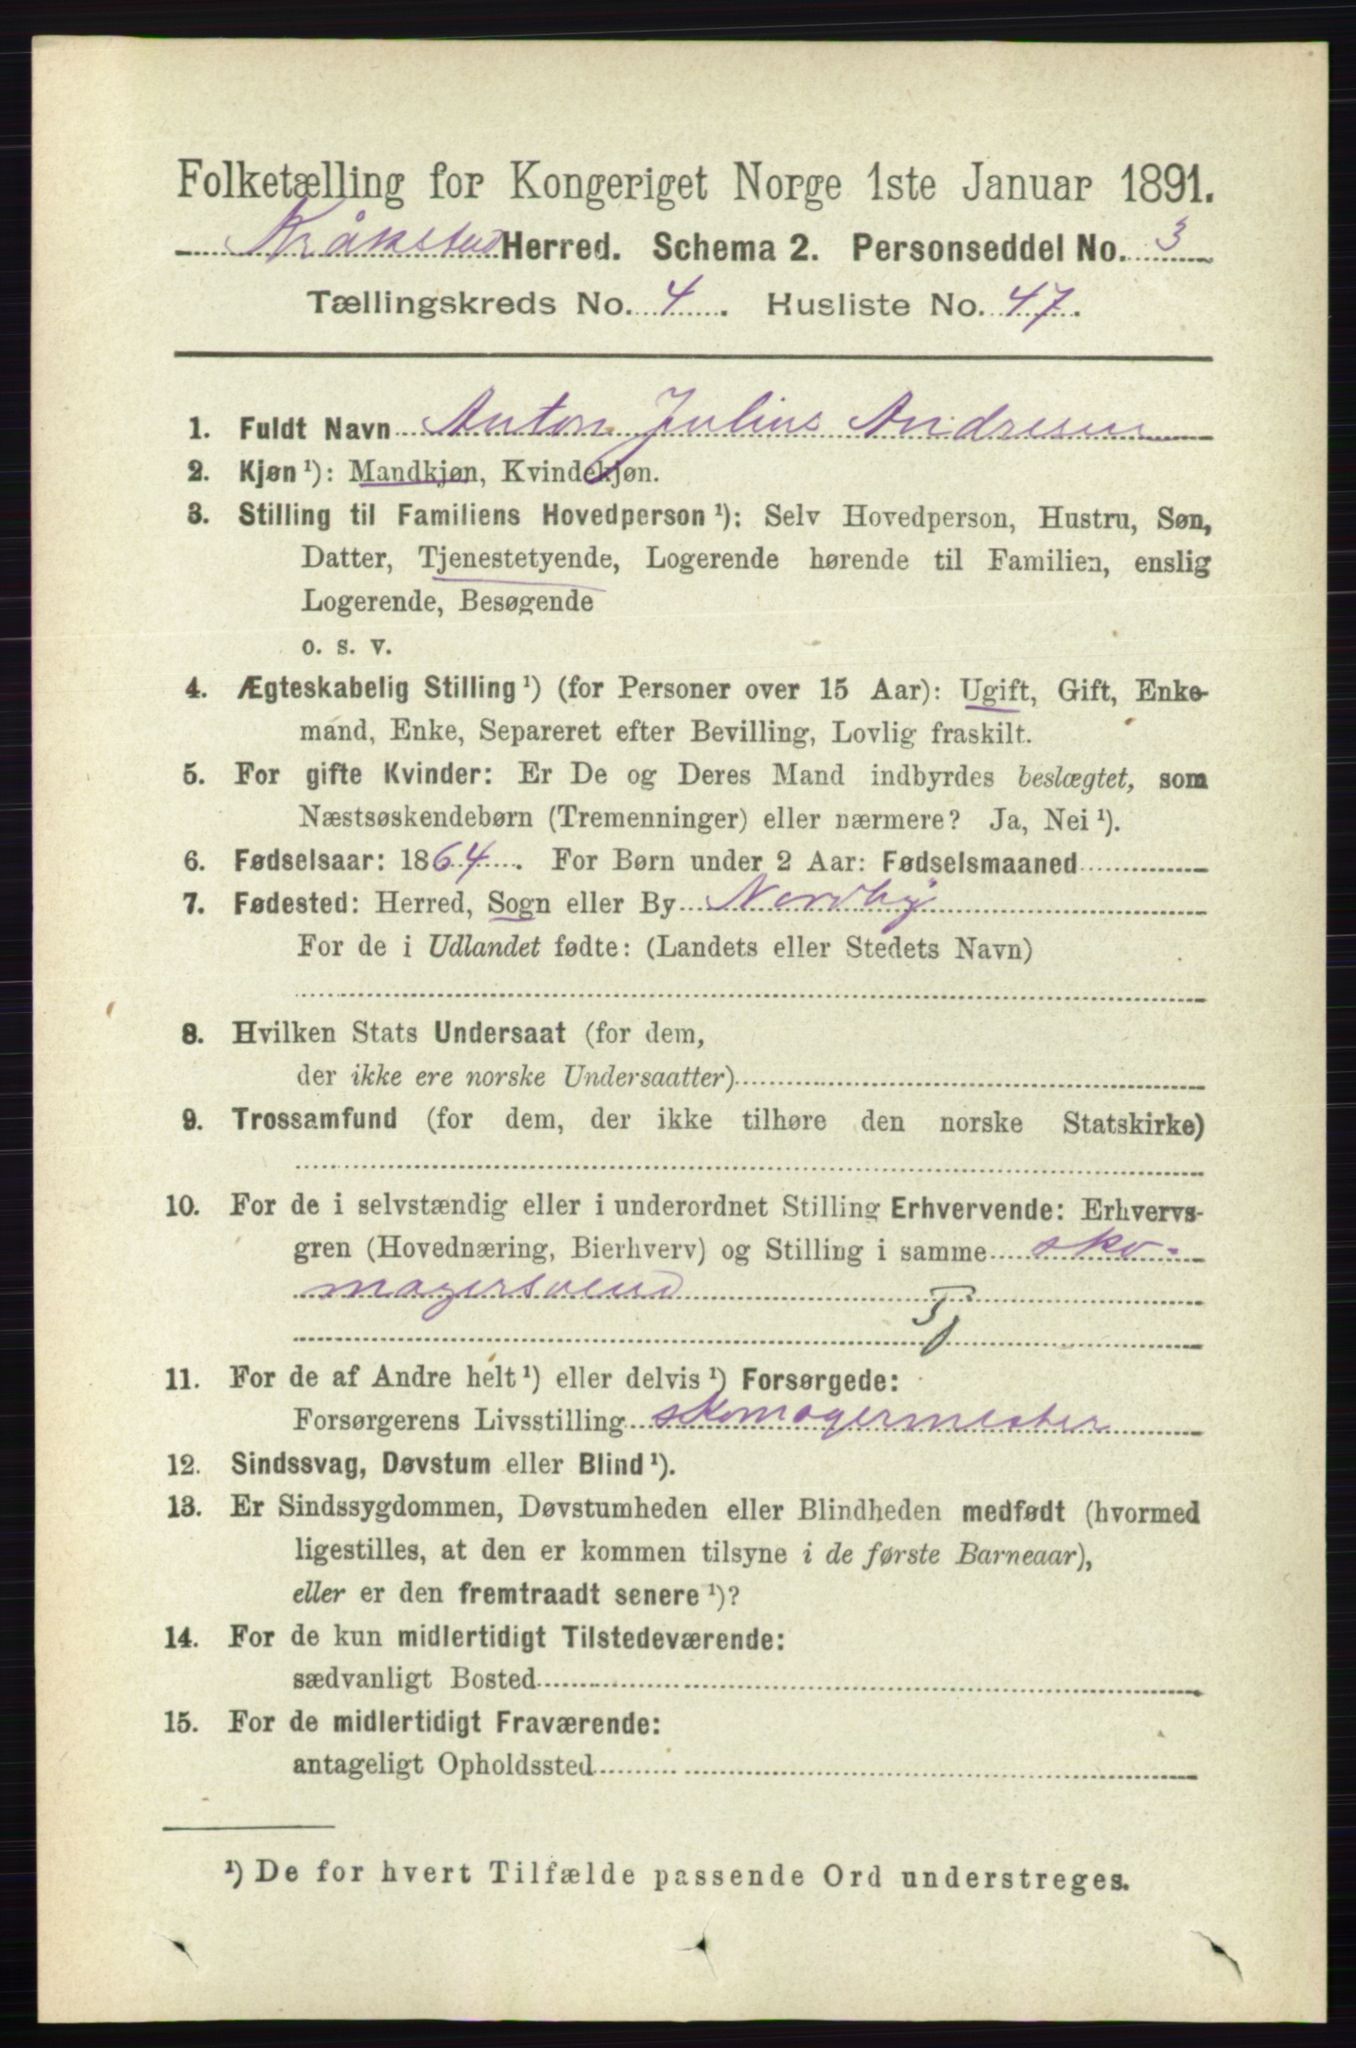 Folketælling for Kongeriget Norge 1ste Januar 1891.
Kråkstad Herred. Schema 2. Personseddel No. 3
Tællingskreds No. 4. Husliste No. 47.
1. Fuldt Navn Anton Julius Andresen
2. Kjøn¹): Mandkjøn, Kvindekjøn.
3. Stilling til Familiens Hovedperson¹): Selv Hovedperson, Hustru, Søn,
Datter, Tjenestetyende, Logerende hørende til Familien, enslig
Logerende, Besøgende
o. s. v.
4. Ægteskabelig Stilling¹) (for Personer over 15 Aar): Ugift, Gift, Enke-
mand, Enke, Separeret efter Bevilling, Lovlig fraskilt.
5. For gifte Kvinder: Er De og Deres Mand indbyrdes beslægtet, som
Næstsøskendebørn (Tremenninger) eller nærmere? Ja, Nei¹).
6. Fødselsaar: 1864. For Børn under 2 Aar: Fødselsmaaned
7. Fødested: Herred, Sogn eller By Nordby
For de i Udlandet fødte: (Landets eller Stedets Navn)
8. Hvilken Stats Undersaat (for dem,
der ikke ere norske Undersaatter)
9. Trossamfund (for dem, der ikke tilhøre den norske Statskirke)
10. For de i selvstændig eller i underordnet Stilling Erhvervende: Erhvervs-
gren (Hovednæring, Bierhverv) og Stilling i samme sko-
magersvend
11. For de af Andre helt¹) eller delvis¹) Forsørgede:
Forsørgerens Livsstilling skomagermester
12. Sindssvag, Døvstum eller Blind¹).
13. Er Sindssygdommen, Døvstumheden eller Blindheden medfødt (hvormed
ligestilles, at den er kommen tilsyne i de første Barneaar),
eller er den fremtraadt senere¹)?
14. For de kun midlertidigt Tilstedeværende:
sædvanligt Bosted
15. For de midlertidigt Fraværende:
antageligt Opholdssted
¹) De for hvert Tilfælde passende Ord understreges.